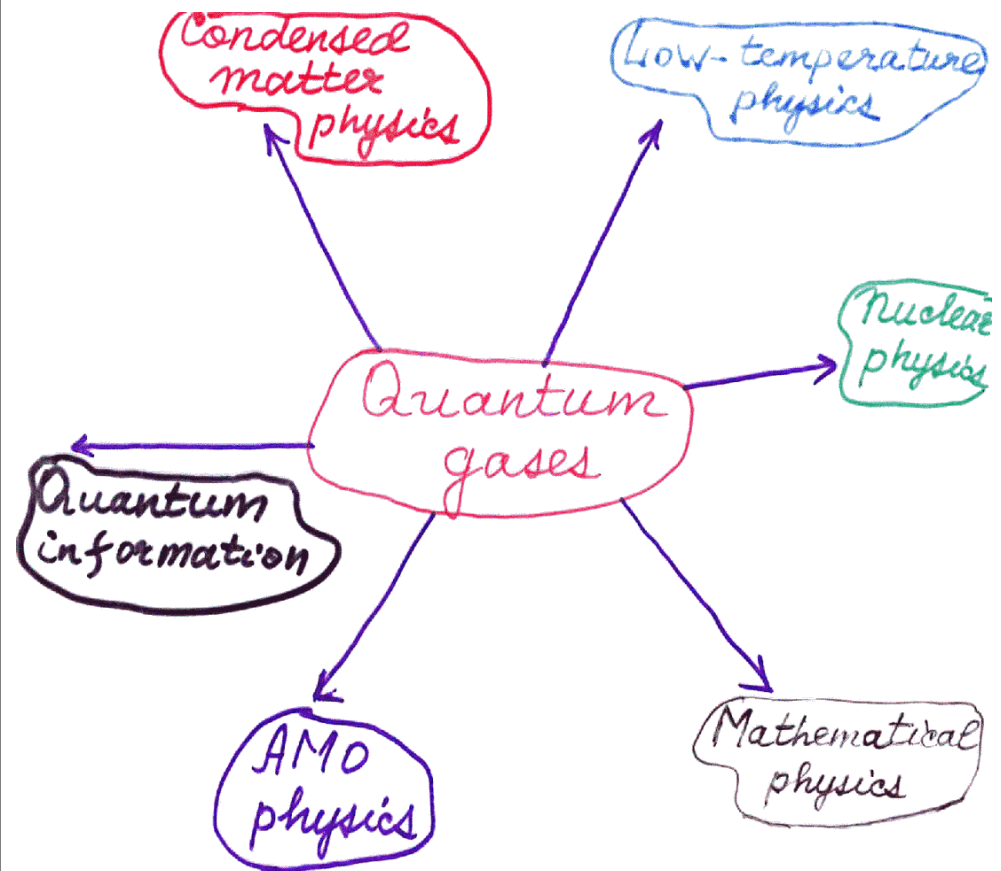 Condensed
matter
physics
Low-temperature
physics
Nuclear
physics
Quantum
gases
Quantum
information
AMO
physics
Mathematical
physics